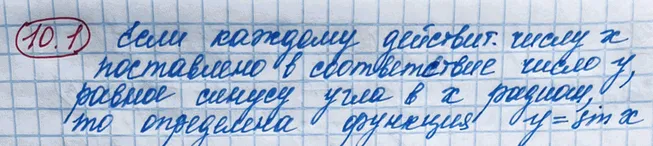 10.1 Если каждому действит. числу x
поставлено в соответствие число y,
равное синусу угла в x радиан,
то определена функция y = sin x